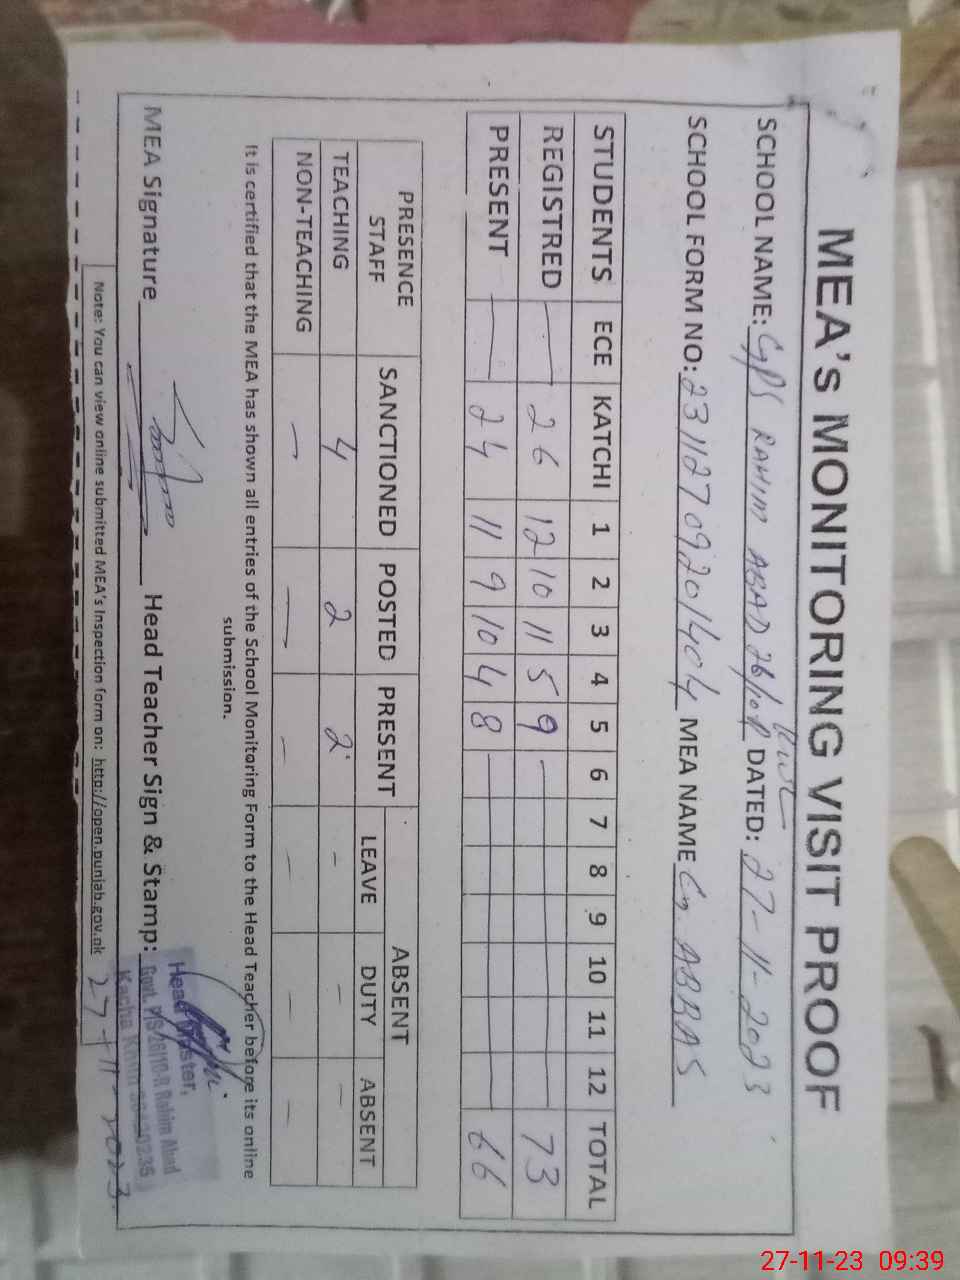 MEA's MONITORING VISIT PROOF
SCHOOL NAME: GPS RAHIM ABAD 26/10R DATED: 27-11-2023
SCHOOL FORM NO: 23112709201404 MEA NAME G. ABBAS
STUDENTS ECE KATCHI 1 2 3 4 5 6 7 8 9 10 11 12 TOTAL
REGISTRED — 26 12 10 11 5 9 — 73
PRESENT — 24 11 9 10 4 8 — 66
PRESENCE STAFF SANCTIONED POSTED PRESENT ABSENT
LEAVE DUTY ABSENT
TEACHING 4 2 2 - - -
NON-TEACHING — — - - - -
It is certified that the MEA has shown all entries of the School Monitoring Form to the Head Teacher before its online
submission.
MEA Signature Head Teacher Sign & Stamp:
Head Master,
Govt. P/S 26/10-R Rahim Abad
Kacha Khuh
27-11-2023
Note: You can view online submitted MEA's Inspection form on: http://open.punjab.gov.pk
27-11-23 09:39